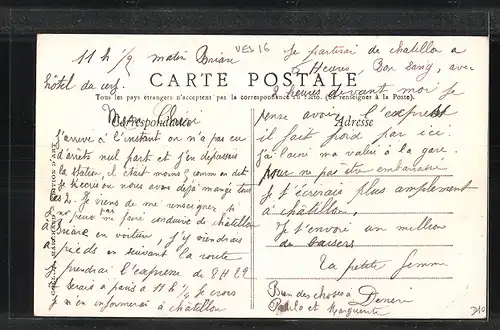 11 h 1/2 matin Briare
hôtel du cerf.
VES 16
CARTE POSTALE
Tous les pays étrangers n'acceptent pas la correspondance au recto. (Se renseigner à la Poste).
Correspondance
Adresse
Mon Chéri
J'arrive à l'instant on n'a pas eu
d'arrêts nul part et j'en depassais
la station, il était moins 5 comme on dit
où nous avons déjà mangé tous
les 2. Je viens de me renseigner si
je peux me faire conduire de châtillon
à Briare en voiture, j'y viendrais
à pieds en suivant la route
je prendrai l'express de 8 H 29
je serais à paris à 11 h 1/4 je crois
je m'en informerai à châtillon
Je partirai de chatillon a
5 Heures Bon sang, avec
2 heures devant moi je
pense avoir l'express
il fait froid par ici.
J'ai laissé ma valise à la gare.
pour ne pas être embarrassé
Je t'écrerais plus amplement
à châtillon,
Je t'envoi un million
de baisers
Ta petite femme
Bien des choses à
Paulo et Marguerite